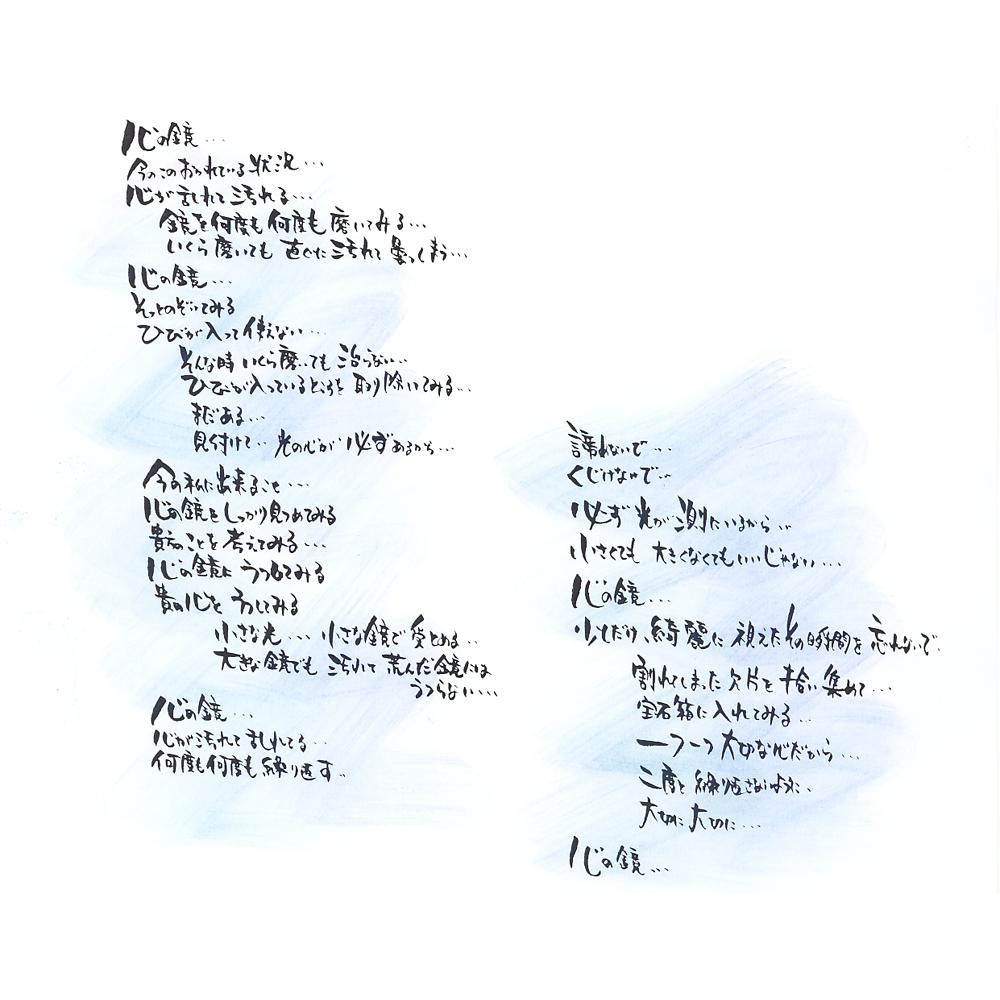 心の鏡...
今のこのおかれている状況...
心が乱れて汚れる...
鏡を何度も何度も磨いてみる...
いくら磨いても直ぐに汚れて曇ってしまう...
心の鏡...
そっとのぞいてみる
ひびが入って使えない...
そんな時いくら磨いても治らない...
ひびが入っているところを取り除いてみる...
まだある...
見付けて..光の心が必ずあるから...
今の私に出来ること...
心の鏡をしっかり見つめてみる
貴方のことを考えてみる...
心の鏡にうつしてみる
貴方の心をうつしてみる
小さな光...小さな鏡で受とめる..
大きな鏡でも汚れて荒んだ鏡には
うつらない...
心の鏡...
心が汚れて乱れてる...
何度も何度も繰り返す..
諦めないで...
くじけないで..
必ず光が側にいるから..
小さくても大きくなくてもいいじゃない...
心の鏡...
少しだけ、綺麗に視えたその瞬間を忘れないで.
割れてしまった欠片を拾い集めて...
宝石箱に入れてみる..
一つ一つ大切な心だから...
二度と繰り返さないように.
大切に大切に...
心の鏡...